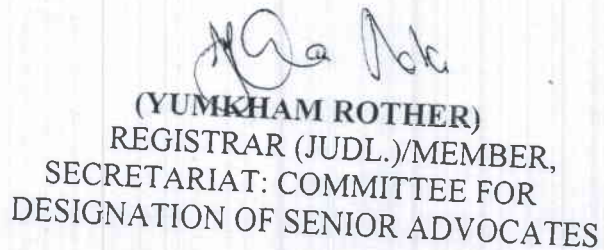 (YUMKHAM ROTHER)
REGISTRAR (JUDL.)/MEMBER,
SECRETARIAT: COMMITTEE FOR
DESIGNATION OF SENIOR ADVOCATES